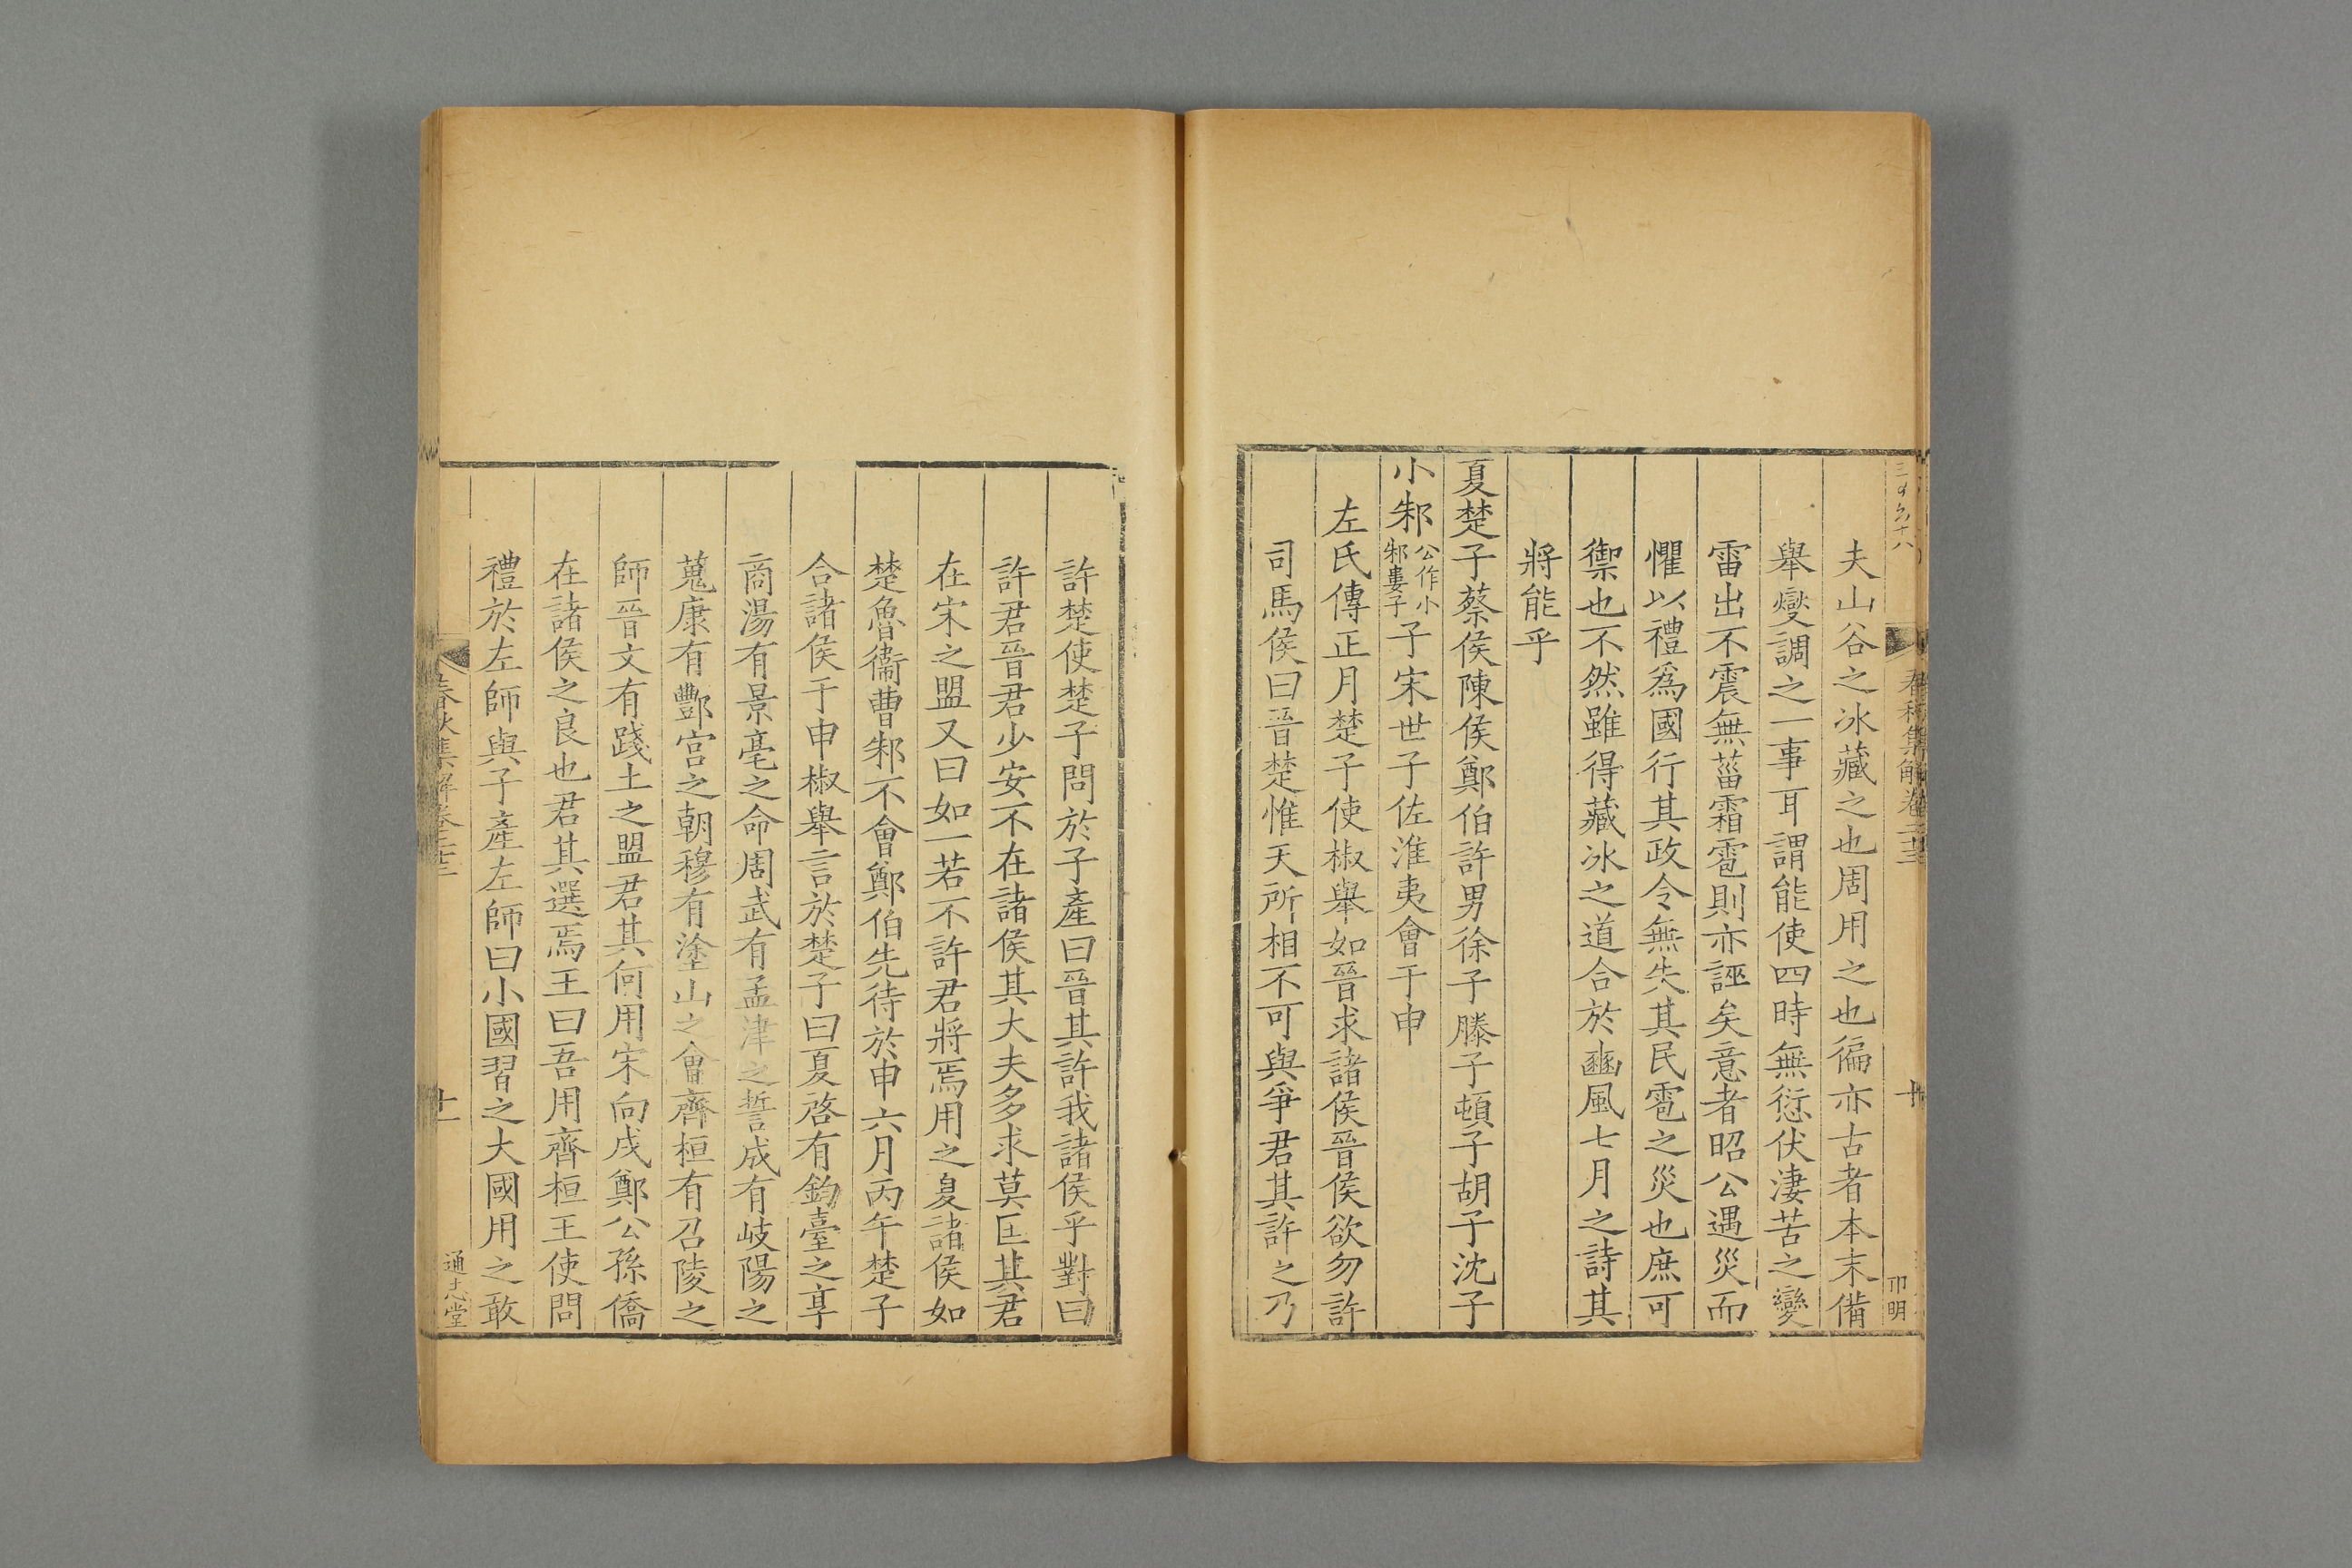 夫山谷之冰藏之也周用之也徧亦古者本末備
舉燮調之一事耳謂能使四時無愆伏淒苦之變
雷出不震無菑霜雹則亦誣矣意者昭公遇災而
懼以禮爲國行其政令無失其民雹之災也庶可
禦也不然雖得藏冰之道合於豳風七月之詩其
將能乎
夏楚子蔡侯陳侯鄭伯許男徐子滕子頓子胡子沈子
小邾公作小邾婁子子宋世子佐淮夷會于申
左氏傳正月楚子使椒舉如晉求諸侯晉侯欲勿許
司馬侯曰晉楚惟天所相不可與爭君其許之乃
春秋集解卷二十三
十
卬明
許楚使楚子問於子產曰晉其許我諸侯乎對曰
許君晉君少安不在諸侯其大夫多求莫匡其君
在宋之盟又曰如一若不許君將焉用之夏諸侯如
楚魯衞曹邾不會鄭伯先待於申六月丙午楚子
合諸侯于申椒舉言於楚子曰夏啓有鈞臺之享
商湯有景亳之命周武有孟津之誓成有岐陽之
蒐康有酆宮之朝穆有塗山之會齊桓有召陵之
師晉文有踐土之盟君其何用宋向戌鄭公孫僑
在諸侯之良也君其選焉王曰吾用齊桓王使問
禮於左師與子產左師曰小國習之大國用之敢
春秋集解卷二十三
十一
通志堂